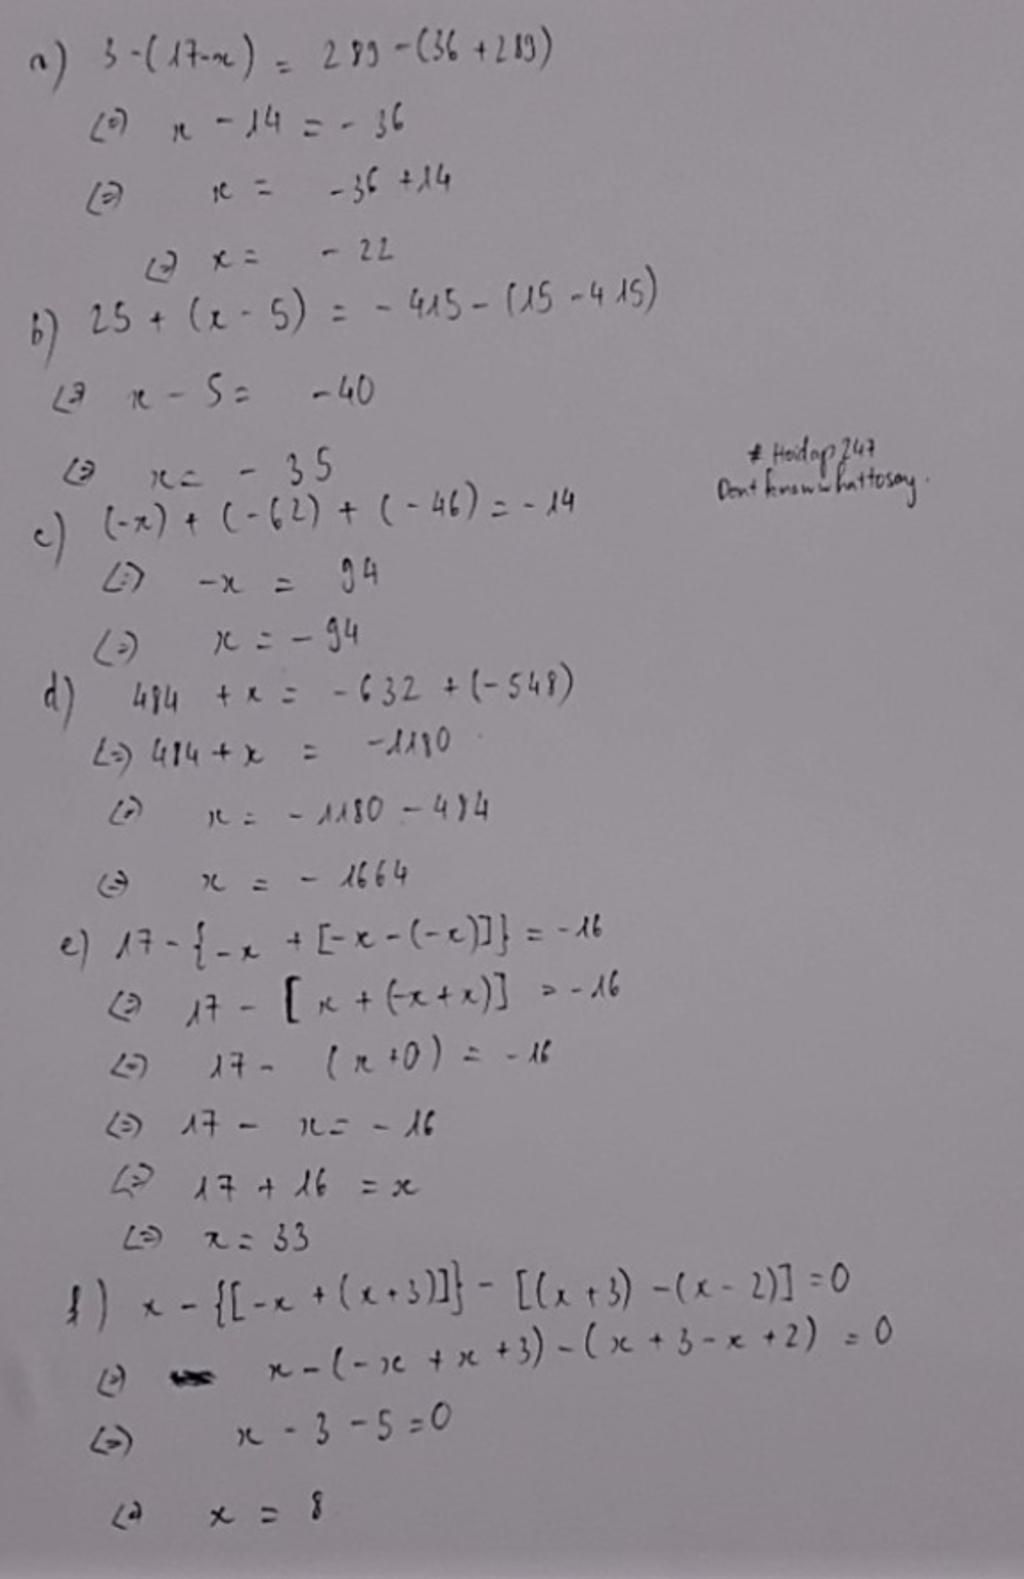 a) 3 - (17 - x) = 289 - (36 + 289)
<=> x - 14 = - 36
<=> x = - 36 + 14
<=> x = - 22
b) 25 + (x - 5) = - 415 - (15 - 415)
<=> x - 5 = - 40
<=> x = - 35
c) (-x) + (-62) + (-46) = -14
<=> -x = 94
<=> x = - 94
d) 484 + x = - 632 + (-548)
<=> 484 + x = -1180
<=> x = - 1180 - 484
<=> x = - 1664
e) 17 - {-x + [-x - (-x)]} = -16
<=> 17 - [x + (-x + x)] = -16
<=> 17 - (x + 0) = -16
<=> 17 - x = - 16
<=> 17 + 16 = x
<=> x = 33
f) x - {[-x + (x + 3)]} - [(x + 3) - (x - 2)] = 0
<=> x - (-x + x + 3) - (x + 3 - x + 2) = 0
<=> x - 3 - 5 = 0
<=> x = 8
# Hoidap247
Dontknowwhattosay.